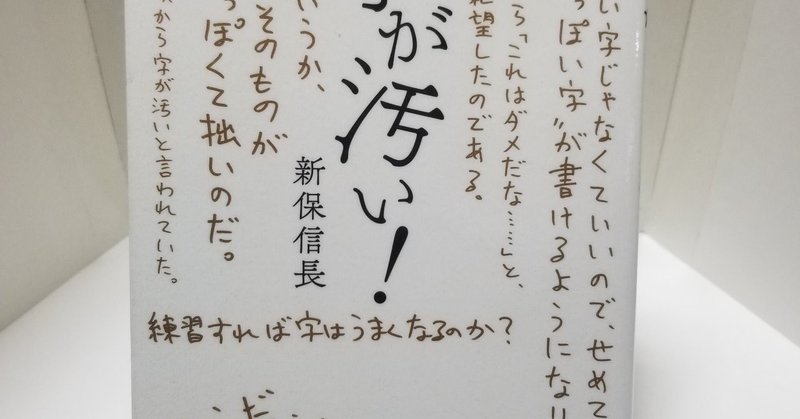 い字じゃなくていいので、せめて
っぽい字”が書けるようになり
ら「これはダメだな……」と、
絶望したのである。
が汚い!
新保信長
いうか、
そのものが
っぽくて拙いのだ。
から字が汚いと言われていた。
練習すれば字はうまくなるのか?